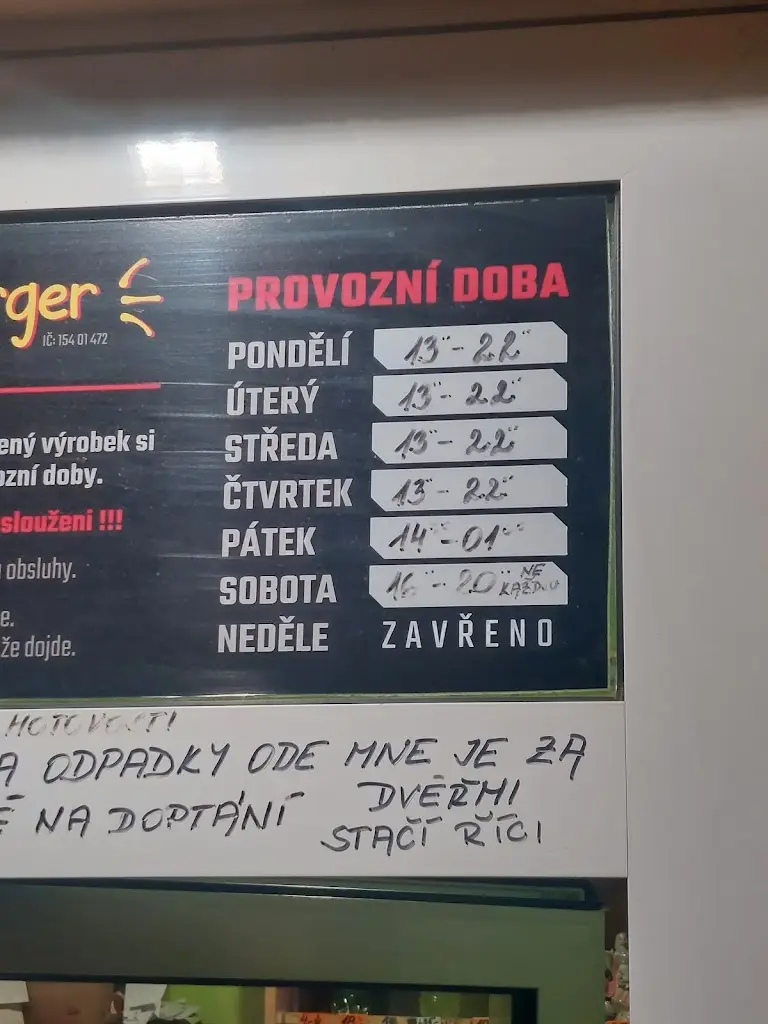 rger
IČ: 154 01 472
ený výrobek si
ozní doby.
sloužení !!!
obsluhy.
e.
že dojde.
PROVOZNÍ DOBA
PONDĚLÍ 13°° - 22°°
ÚTERÝ 13°° - 22°°
STŘEDA 13°° - 22°°
ČTVRTEK 13°° - 22°°
PÁTEK 14°° - 01°°
SOBOTA 16°° - 20°° NE KAŽDOU
NEDĚLE ZAVŘENO
HOTOVOSTI
A ODPADKY ODE MNE JE ZA
DVEŘMI
É NA DOPTÁNÍ
STAČÍ ŘÍCI